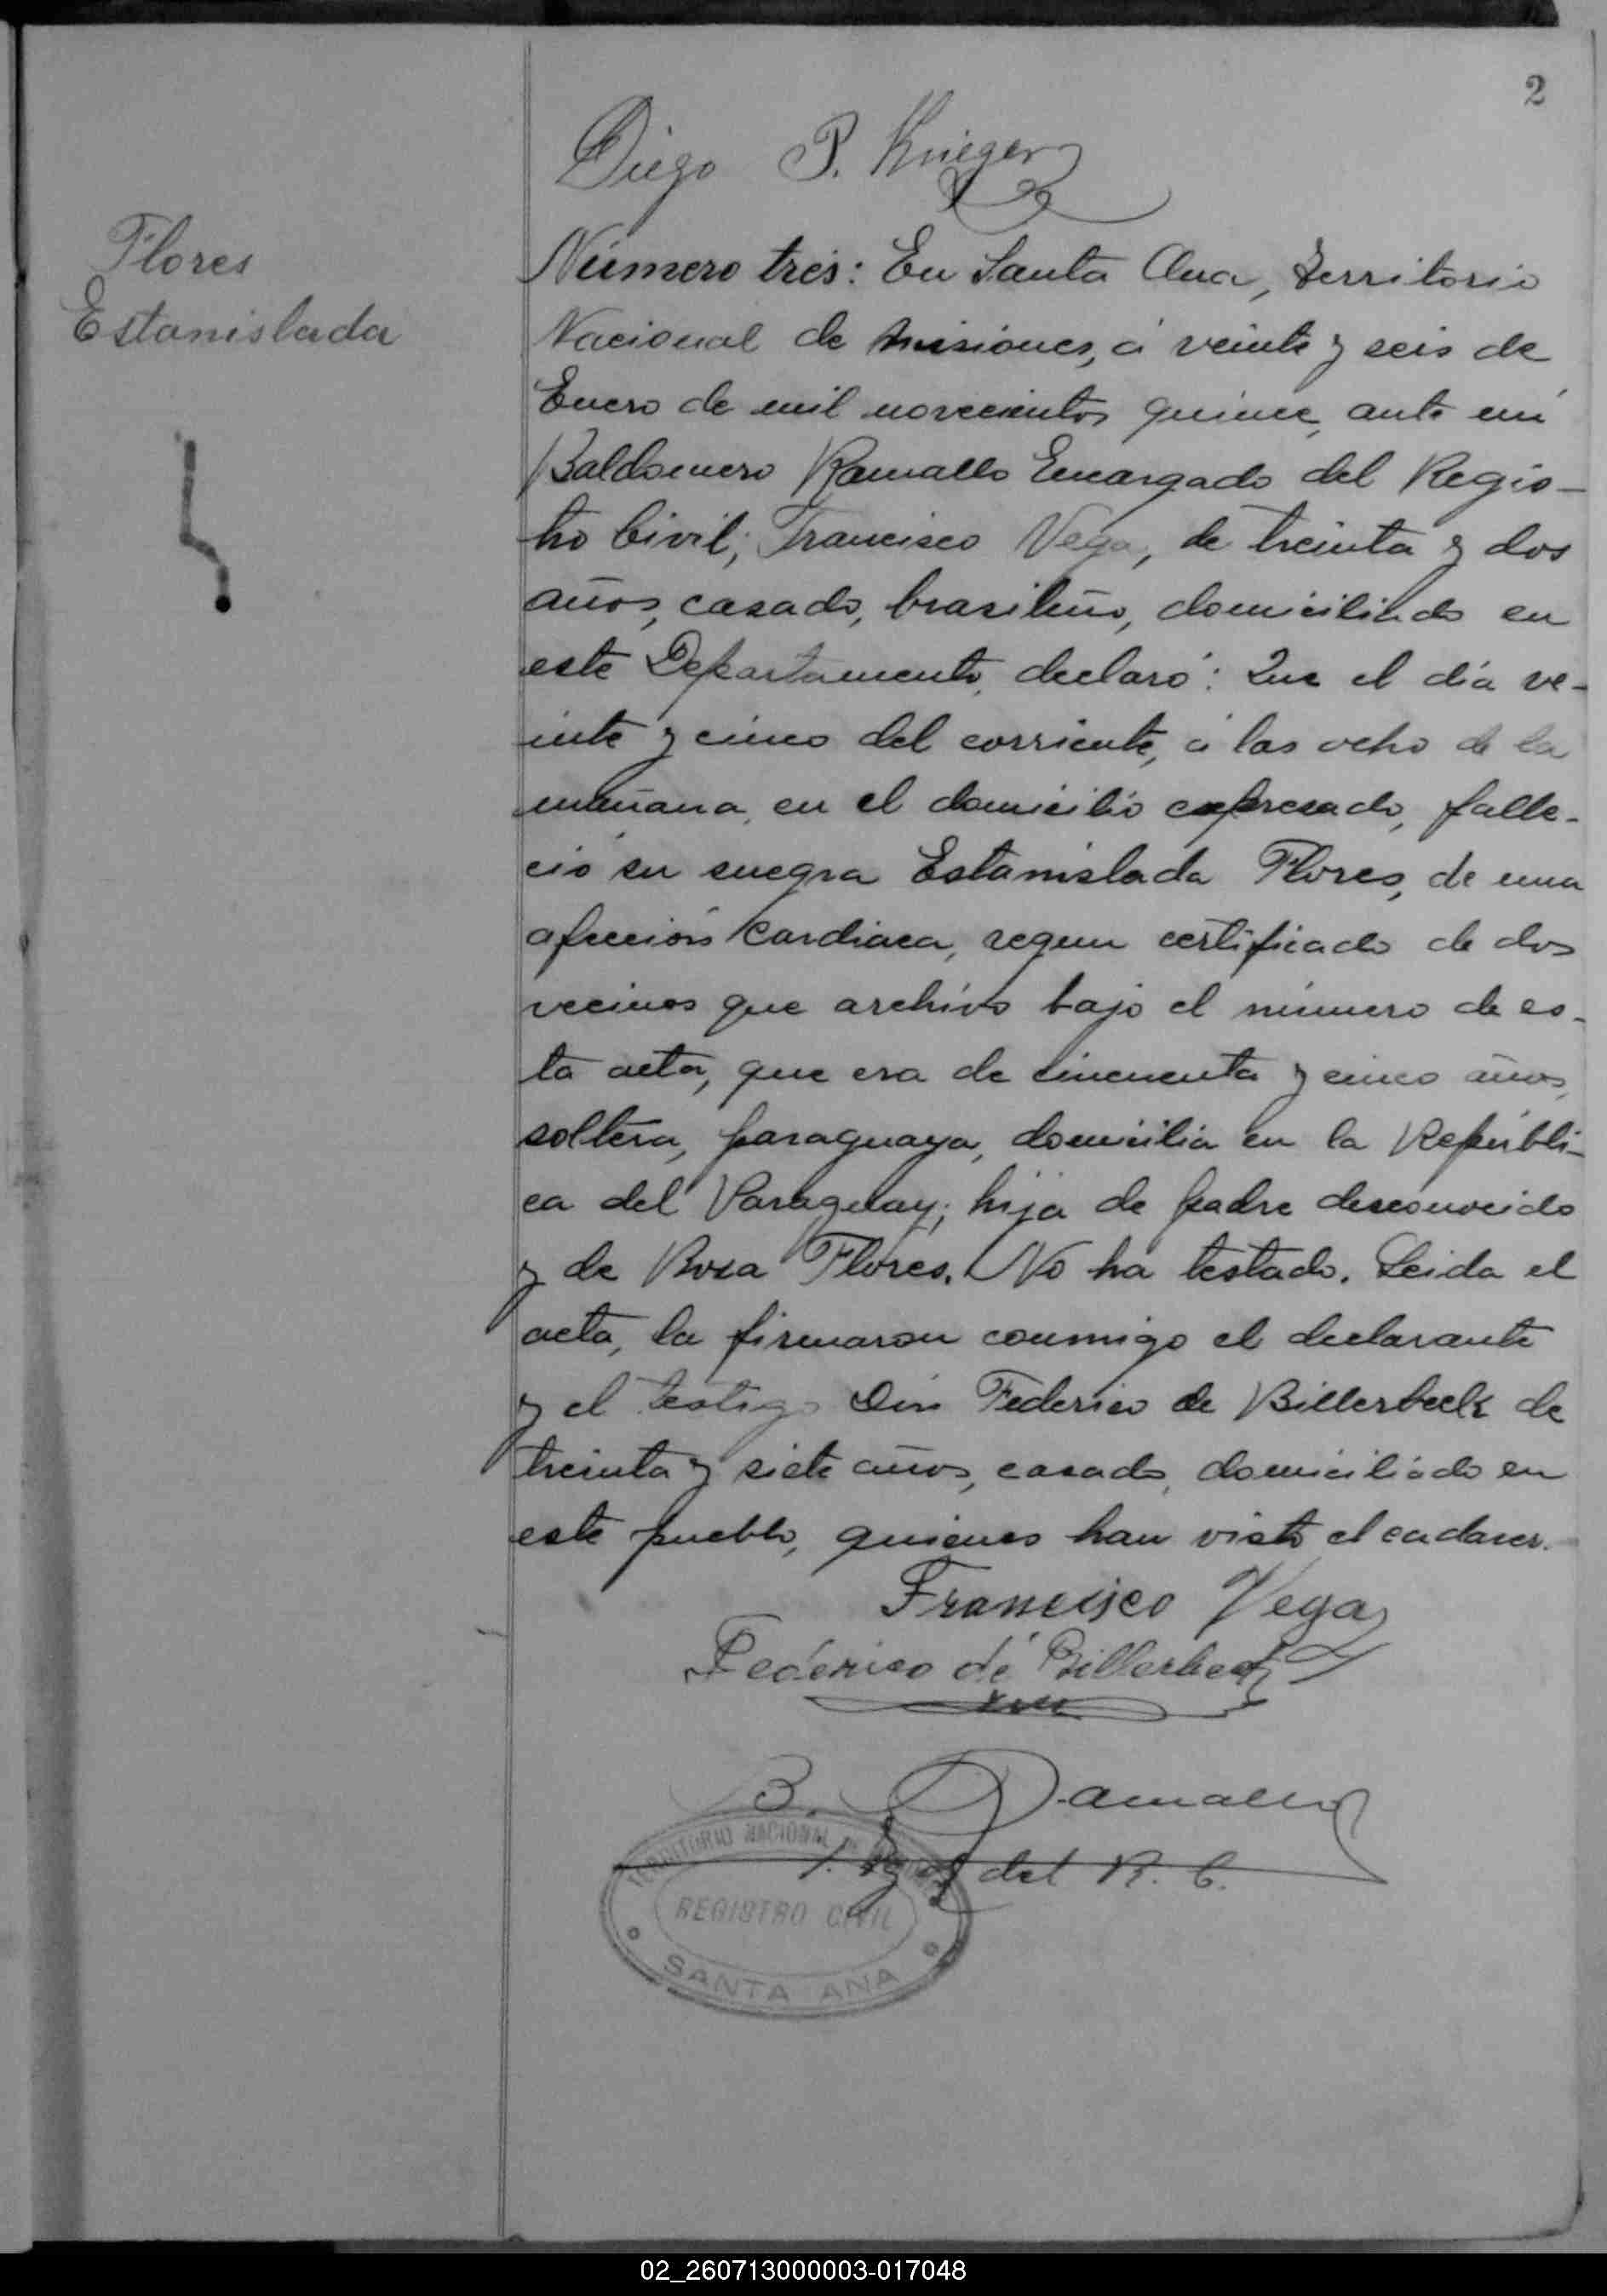 2
Diego P. Krieger
Flores
Estanislada
Número tres: En Santa Ana, Territorio
Nacional de Misiones, á veinte y seis de
Enero de mil novecientos quince, ante mi
Baldomero Ramallo Encargado del Regis-
tro Civil; Francisco Vega, de treinta y dos
años, casado, brasileño, domiciliado en
este Departamento, declaró: Que el día ve-
inte y cinco del corriente, á las ocho de la
mañana, en el domicilio expresado, falle-
ció su suegra Estanislada Flores, de una
afección cardiaca, segun certificado de dos
vecinos que archivo bajo el número de es-
ta acta, que era de cincuenta y cinco años,
soltera, paraguaya, domicilia en la Repúbli-
ca del Paraguay; hija de padre desconocido
y de Rosa Flores. No ha testado. Leida el
acta, la firmaron conmigo el declarante
y el testigo Don Federico de Billerbeck de
treinta y siete años, casado, domiciliado en
este pueblo, quienes han visto el cadaver.
Francisco Vega
Federico de Billerbeck
B. Ramallo
del R. C.
TERRITORIO NACIONAL DE MISIONES
REGISTRO CIVIL
SANTA ANA
02_260713000003-017048